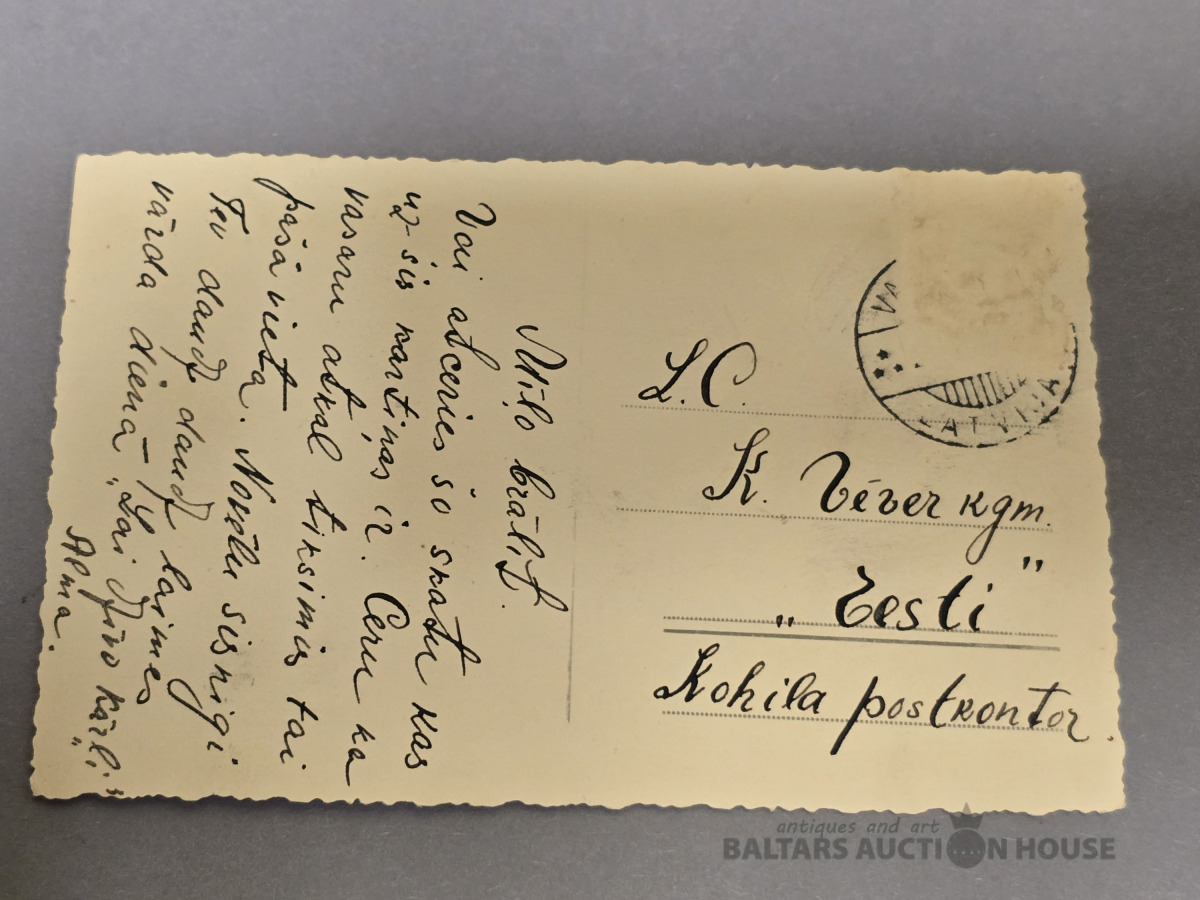 Mīļo brālīt.
Vai atceries šo skatu kas
uz šis kartiņas ir. Ceru ka
vasaru atkal tiksimis tai
pašā vietā. Novēlu sirsnigi
Tev daudz daudz laimes
vārda dienā „Lai dzīvo Kārlis"
Alma.
L.C.
K. Vēver kgm.
„Eesti"
Kohila postkontor.
LATVIJA
antiques and art
BALTARS AUCTION HOUSE